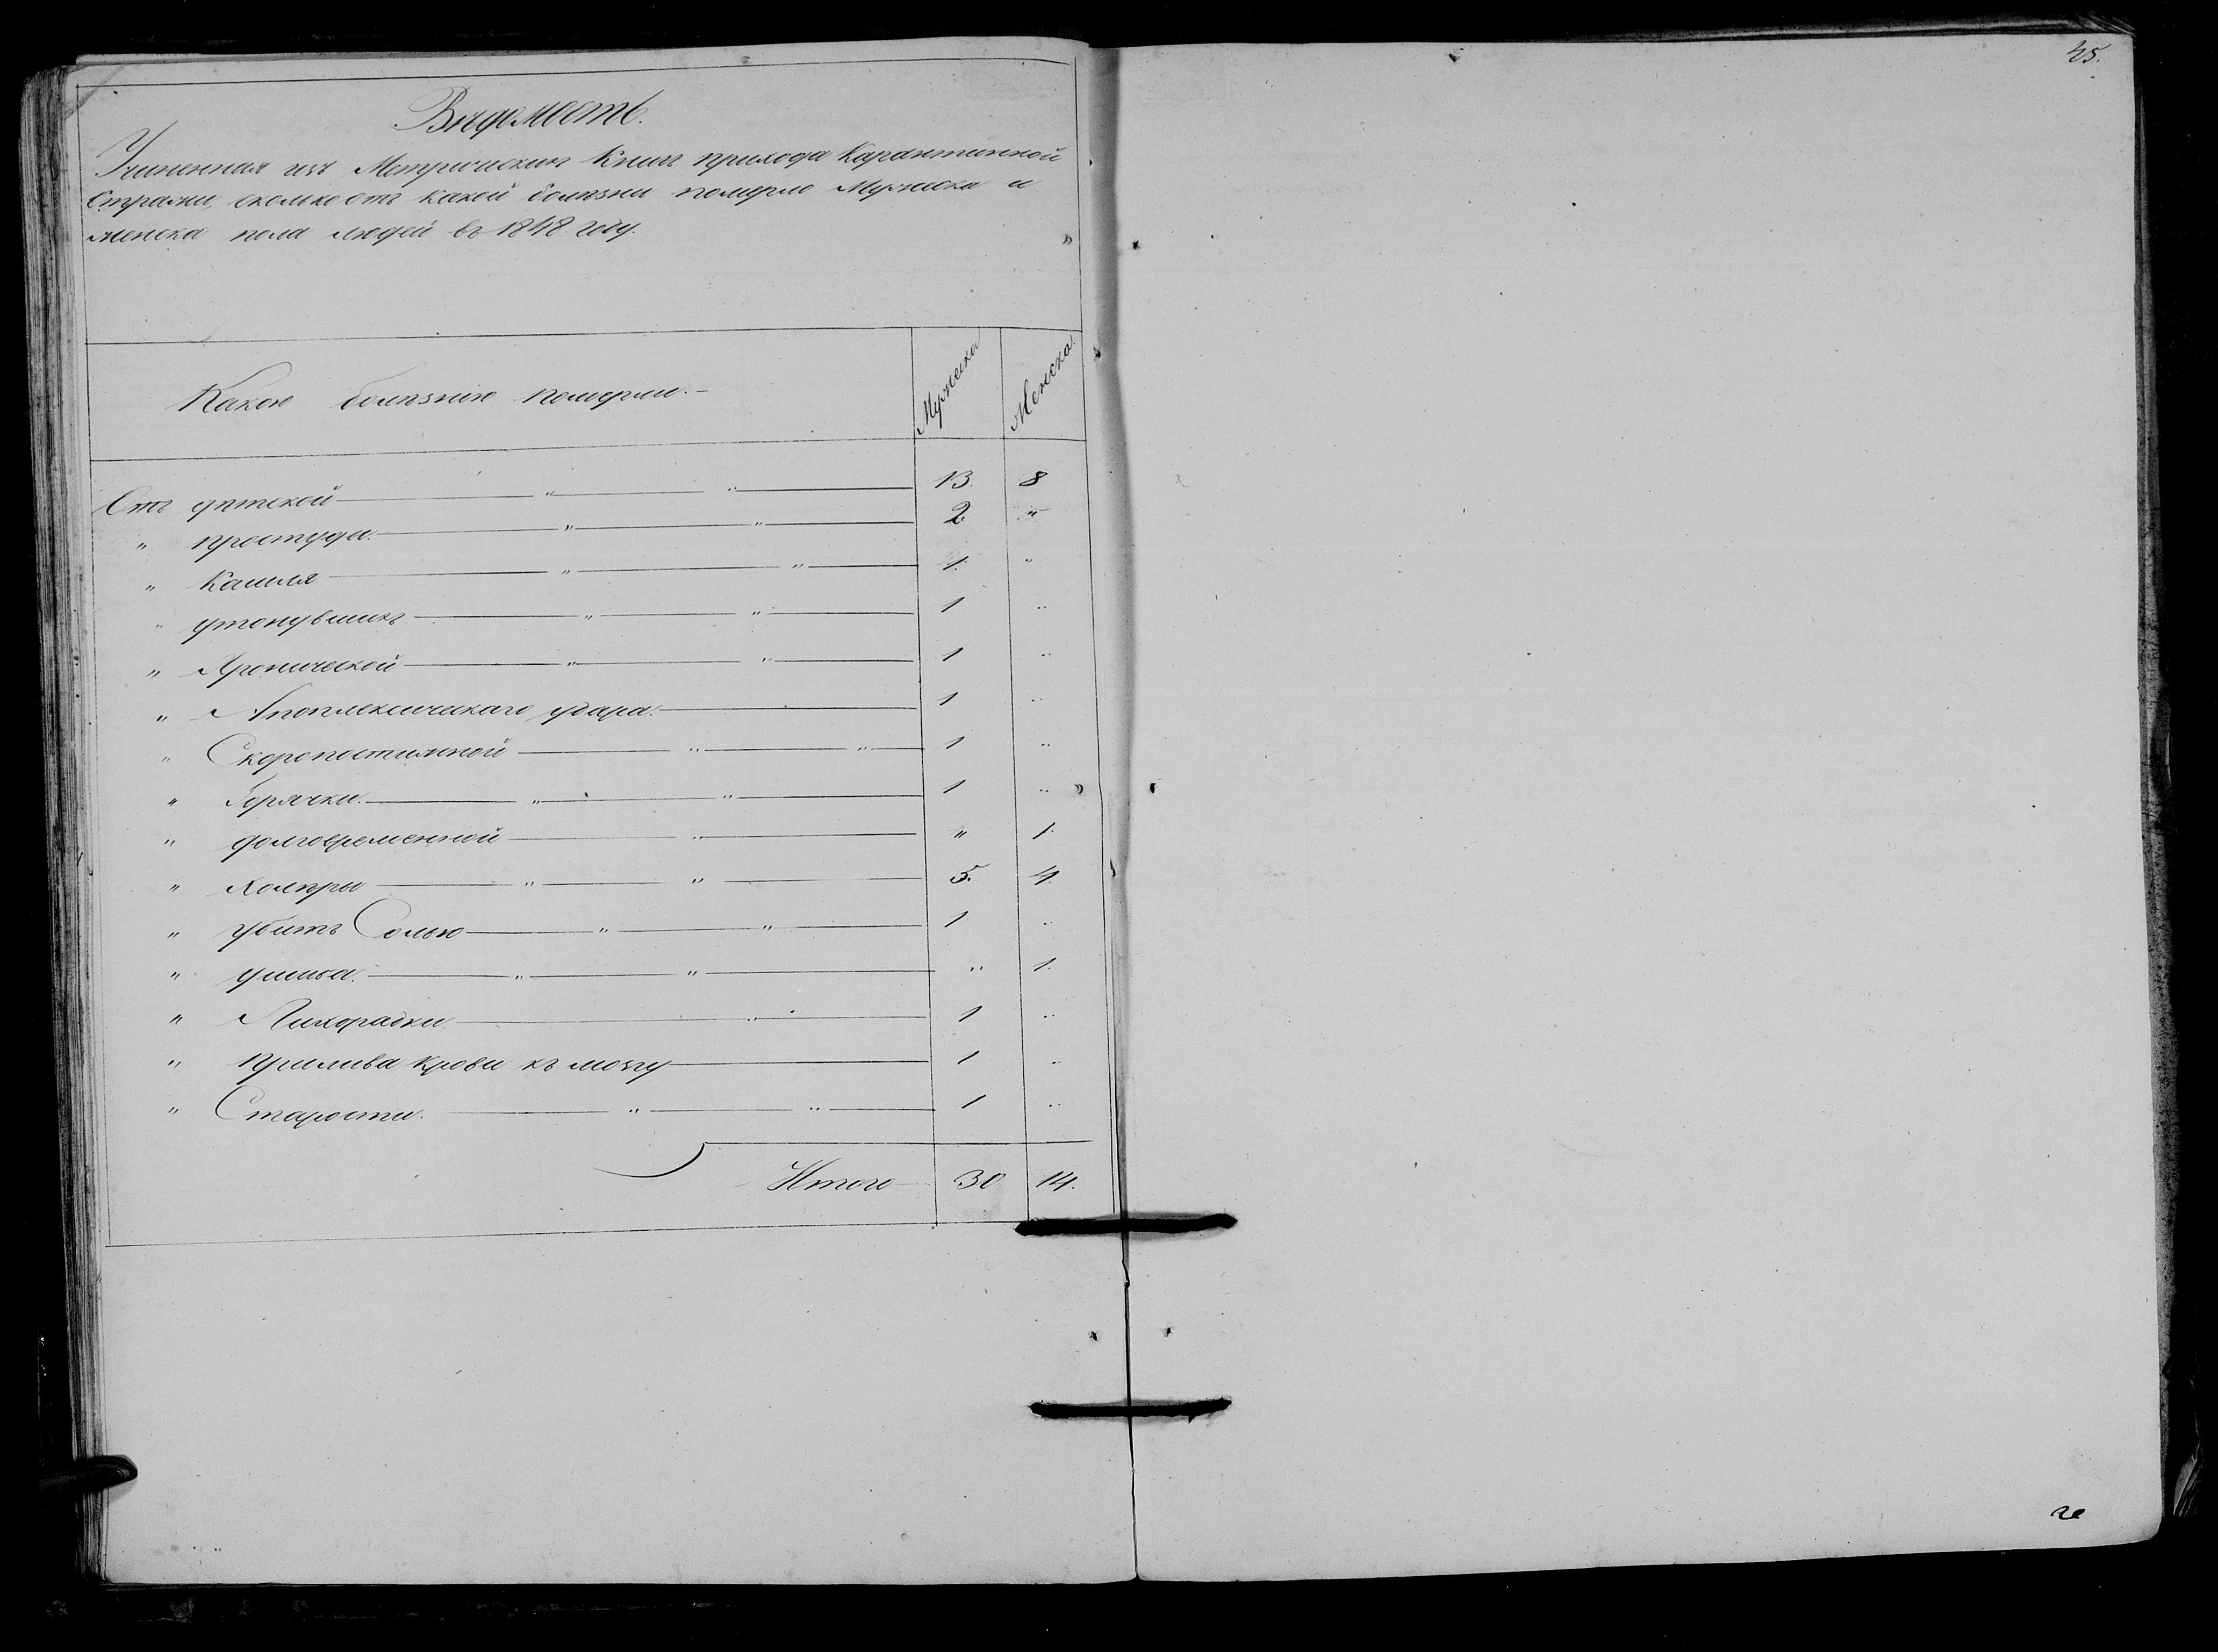 45.
Вѣдомость.
Учиненная изъ Метрическихъ Книгъ прихода Карантинной
Стражи, сколько отъ какой болѣзни померло Мужеска и
женска пола людей въ 1848 году.
Какою болѣзнию померли. Мужеска Женска.
Отъ дѣтской 13. 8
" простуды. 2. "
" Кашля. 1. "
" утонувшихъ 1 "
" Хронической 1 "
" Апоплексическаго удара. 1 "
" Скоропостижной 1 "
" Горячки. 1 "
" долговременной " 1.
" Холѣры 5. 4.
" убитъ Солью 1 "
" ушиба. " 1.
" Лихорадки. 1 "
" прилива крови къ мозгу 1 "
" Старости. 1 "
Итого 30 14.